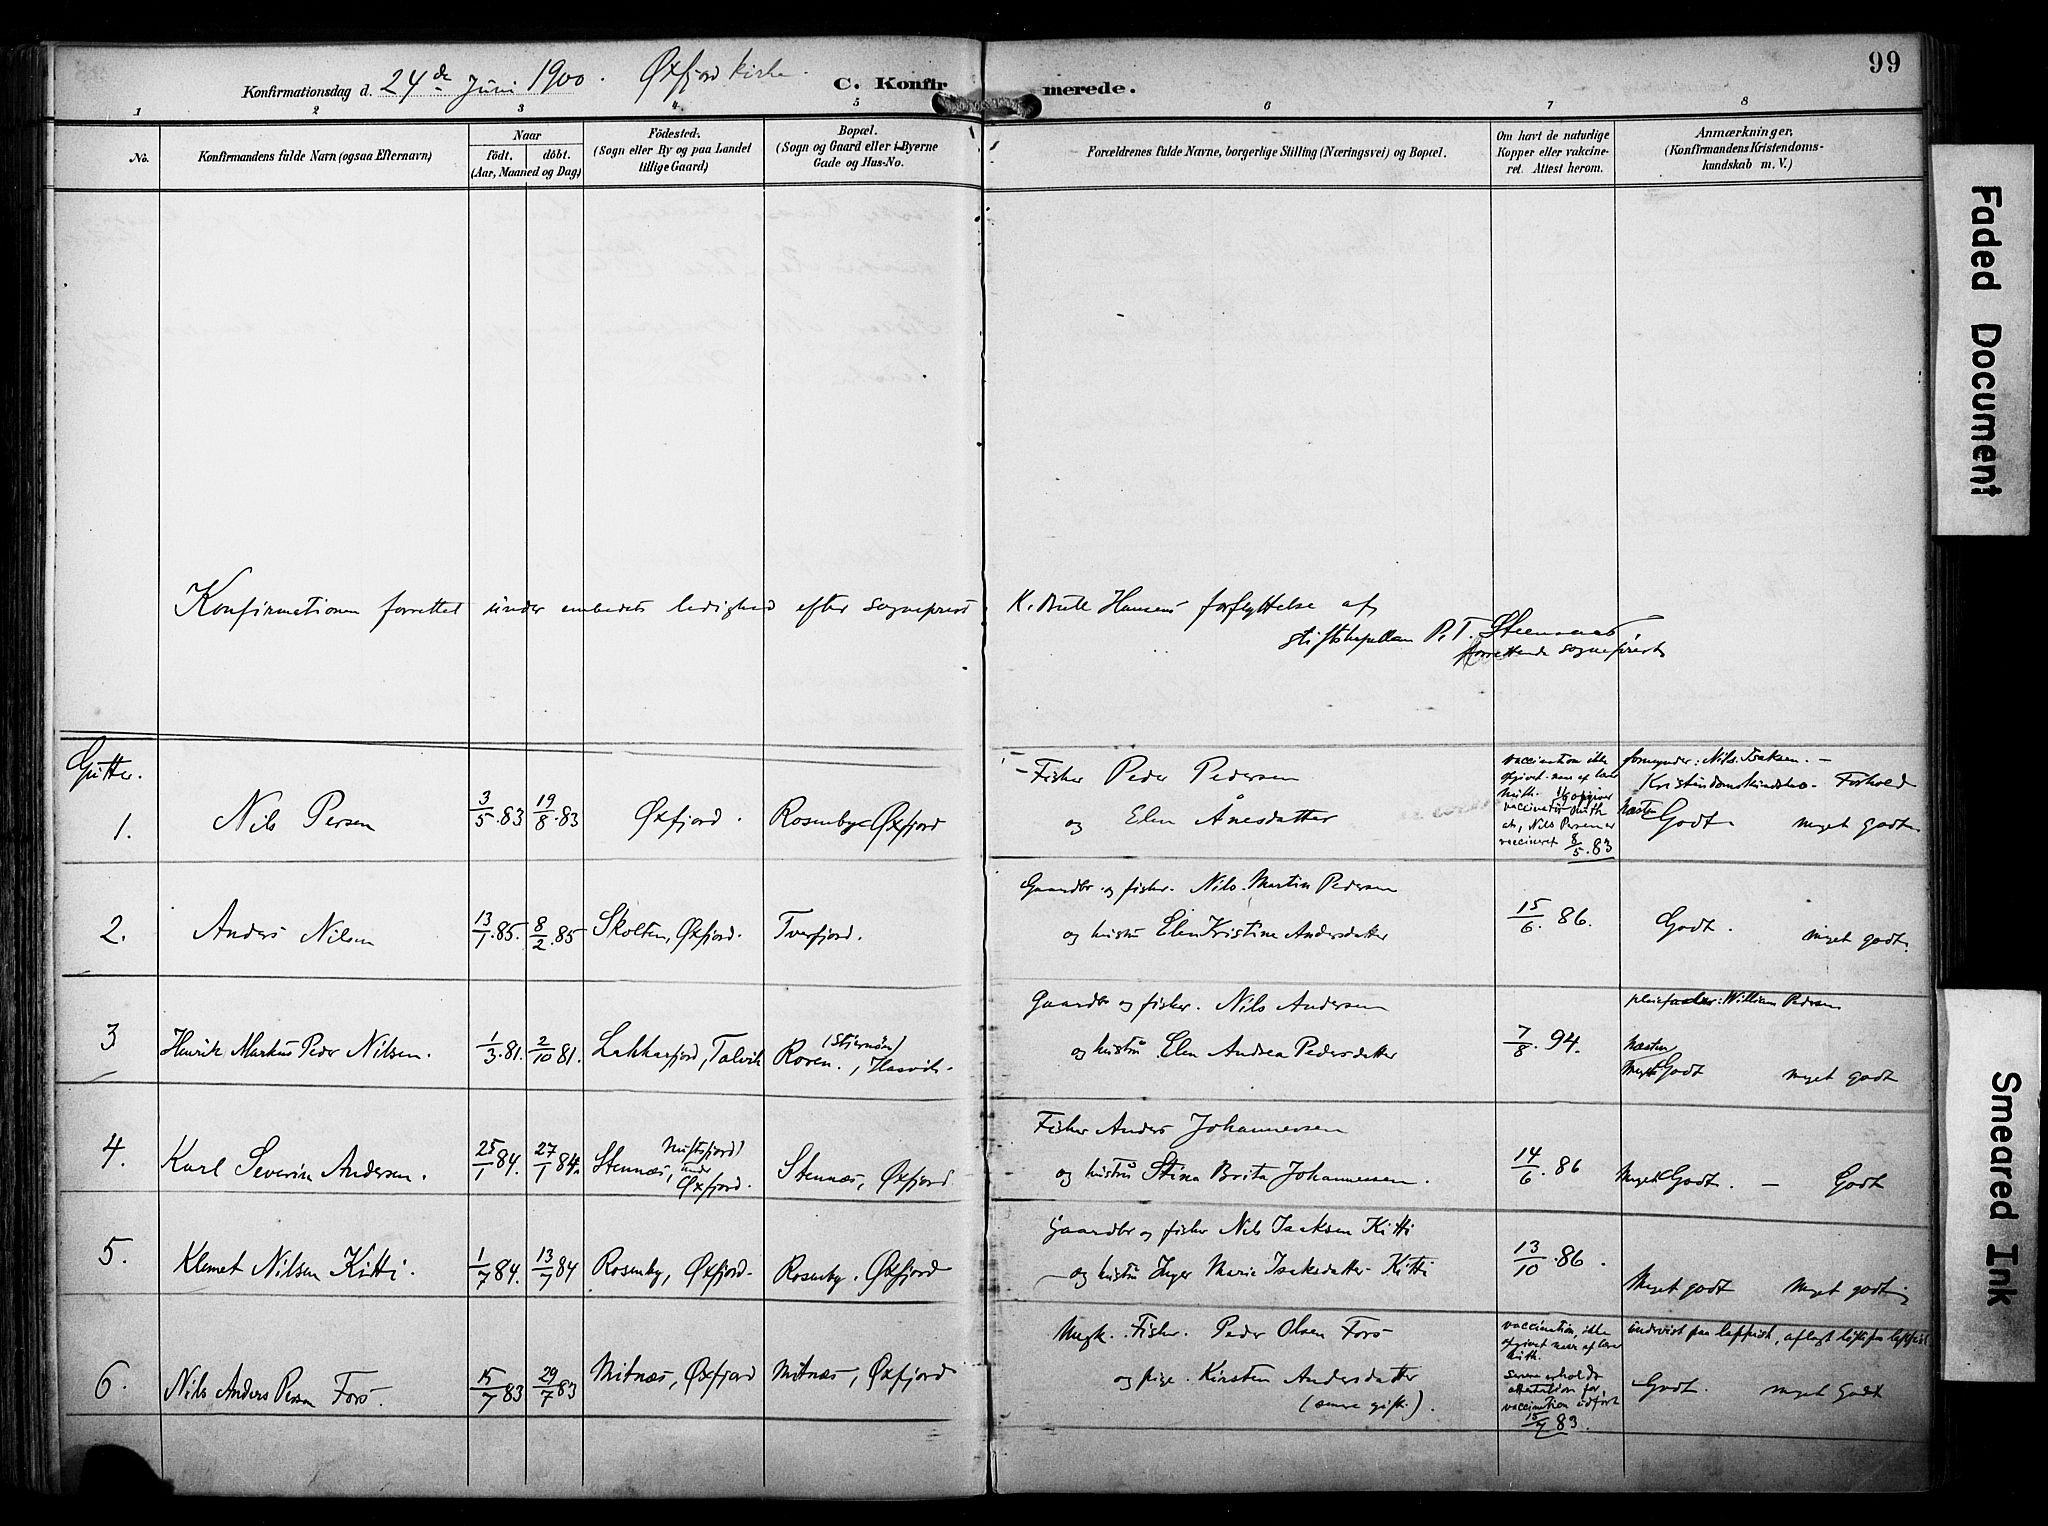 99
Konfirmationsdag d. 24de Juni 1900. Øxfjord kirke.
C. Konfirmerede.
1 2 3 4 5 6 7 8
No.
Konfirmandens fulde Navn (ogsaa Efternavn)
Naar
födt. döbt.
(Aar, Maaned og Dag)
Födested.
(Sogn eller By og paa Landet
tillige Gaard)
Bopæl.
(Sogn og Gaard eller i Byerne
Gade og Hus-No.
Forældrenes fulde Navne, borgerlige Stilling (Næringsvei) og Bopæl.
Om havt de naturlige
Kopper eller vakcine-
ret. Attest herom.
Anmærkninger,
(Konfirmandens Kristendoms-
kundskab m. V.)
Konfirmationen forrettet under embedets ledighed efter sogneprest K. Bull Hansens forflyttelse af
stiftskapellan P. T. Steensaas
forrettende sogneprest
Gutter.
1. Nils Persen 3/5.83 19/8.83 Øxfjord. Rosenby Øxfjord
Fisker Peder Pedersen
og Elen Ånesdatter
vaccination ikke
opgivet
vaccineret 8/5.83
formynder: Nils Isaksen. –
Kristendomskundskab – Forhold
Næsten Godt. meget godt
2. Anders Nilsen 13/1.85. 8/2.85 Skolten, Øxfjord. Tverfjord.
Gaardbr. og fisker. Nils Martin Pedersen
og hustru Elen Kristine Andersdatter
15/6.86.
Godt. meget godt.
3 Henrik Markus Peder Nilsen. 1/3.81. 2/10.81. Lakkarfjord, Talvik (Stjernøen) Roven., Hasvik.
Gaardbr og fisker. Nils Andersen
og hustru Elen Andrea Pedersdatter
7/8.94.
pleiefader: William Pedersen
Næsten
Meget Godt meget godt
4. Karl Severin Andersen. 25/1 84. 27/1 84. Stennæs, Nuftsfjord under Øxfjord. Stennæs, Øxfjord
Fisker Anders Johannessen
og hustru Stina Brita Johannessen.
14/6.86
Meget Godt. – Godt
5. Klemet Nilsen Kitti. 1/7 84. 13/7 84 Rosenby, Øxfjord. Rosenby, Øxfjord
Gaardbr og fisker Nils Isaksen Kitti
og hustru Inger Marie Isaksdatter Kitti
13/10.86.
Meget godt meget godt
6. Nils Anders Persen Fors. 15/7 83 29/7 83 Mitnæs, Øxfjord Mitnæs, Øxfjord
Ungk. Fisker. Peder Olsen Fors
og pige. Kirsten Andersdatter
(senere gift.).
vaccination, ikke
opgivet
senere erholdt
attestation for
vaccination udført
83.
undervist paa lappisk, aflagt løfte paa lappisk
Godt. meget Godt
Faded Document
Smeared Ink